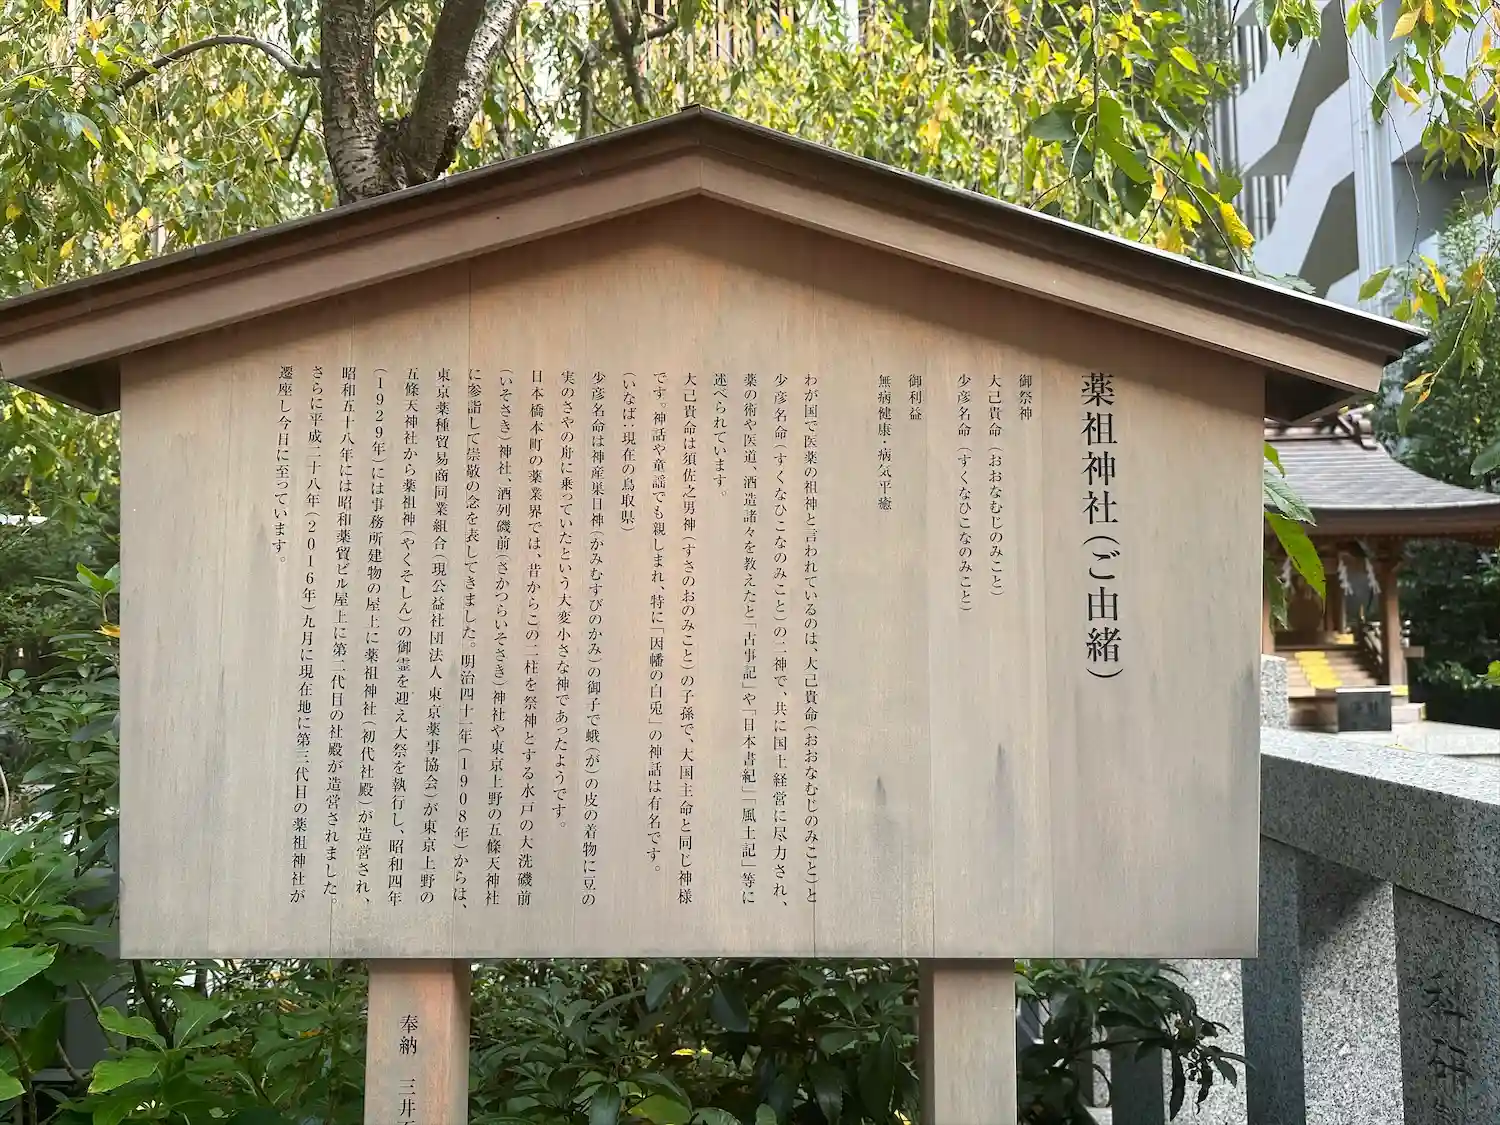 薬祖神社(ご由緒)
御祭神
大己貴命(おおなむじのみこと)
少彦名命(すくなひこなのみこと)
御利益
無病健康・病気平癒
わが国で医薬の祖神と言われているのは、大己貴命(おおなむじのみこと)と
少彦名命(すくなひこなのみこと)の二神で、共に国土経営に尽力され、
薬の術や医道、酒造諸々を教えたと「古事記」や「日本書紀」「風土記」等に
述べられています。
大己貴命は須佐之男神(すさのおのみこと)の子孫で、大国主命と同じ神様
です。神話や童謡でも親しまれ、特に「因幡の白兎」の神話は有名です。
(いなば:現在の鳥取県)
少彦名命は神産巣日神(かみむすびのかみ)の御子で蛾(が)の皮の着物に豆の
実のさやの舟に乗っていたという大変小さな神であったようです。
日本橋本町の薬業界では、昔からこの二柱を祭神とする水戸の大洗磯前
(いそさき)神社、酒列磯前(さかつらいそさき)神社や東京上野の五條天神社
に参詣して崇敬の念を表してきました。明治四十一年(1908年)からは、
東京薬種貿易商同業組合(現公益社団法人 東京薬事協会)が東京上野の
五條天神社から薬祖神(やくそしん)の御霊を迎え大祭を執行し、昭和四年
(1929年)には事務所建物の屋上に薬祖神社(初代社殿)が造営され、
昭和五十八年には昭和薬貿ビル屋上に第二代目の社殿が造営されました。
さらに平成二十八年(2016年)九月に現在地に第三代目の薬祖神社が
遷座し今日に至っています。
奉納 三井
科研